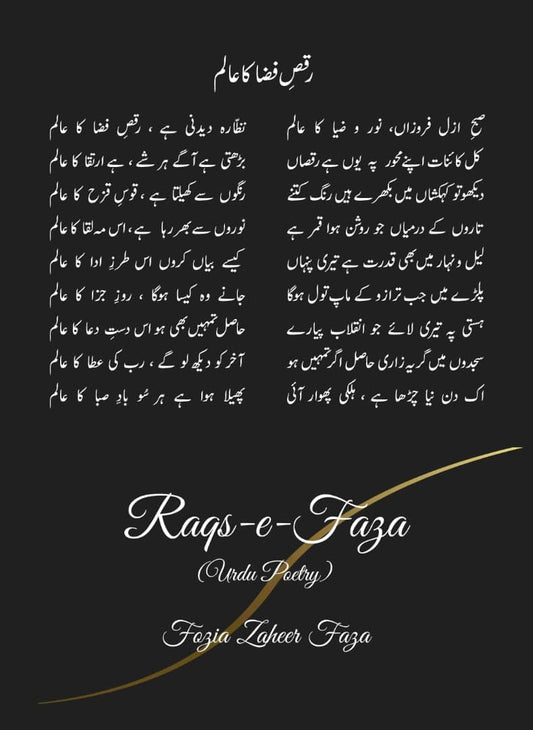 رقصِ فضا کا عالم
صبحِ ازل فروزاں، نور و ضیا کا عالم
نظّارہ دیدنی ہے ، رقصِ فضا کا عالم
کل کائنات اپنے محور پہ یوں ہے رقصاں
بڑھتی ہے آگے ہر شے ، ہے ارتقا کا عالم
دیکھو تو کہکشاں میں بکھرے ہیں رنگ کتنے
رنگوں سے کھیلتا ہے ، قوسِ قزح کا عالم
تاروں کے درمیاں جو روشن ہوا قمر ہے
نوروں سے بھر رہا ہے، اس مہ لقا کا عالم
لیل و نہار میں بھی قدرت ہے تیری پنہاں
کیسے بیاں کروں اس طرزِ ادا کا عالم
پلڑے میں جب ترازو کے ماپ تول ہوگا
جانے وہ کیسا ہوگا ، روزِ جزا کا عالم
ہستی پہ تیری لائے جو انقلاب پیارے
حاصل تمہیں بھی ہو اس دستِ دعا کا عالم
سجدوں میں گریہ زاری حاصل اگر تمہیں ہو
آخر کو دیکھ لو گے ، رب کی عطا کا عالم
اک دن نیا چڑھا ہے ، ہلکی پھوار آئی
پھیلا ہوا ہے ہر سُو بادِ صبا کا عالم
Raqs-e-Faza
(Urdu Poetry)
Fozia Zaheer Faza